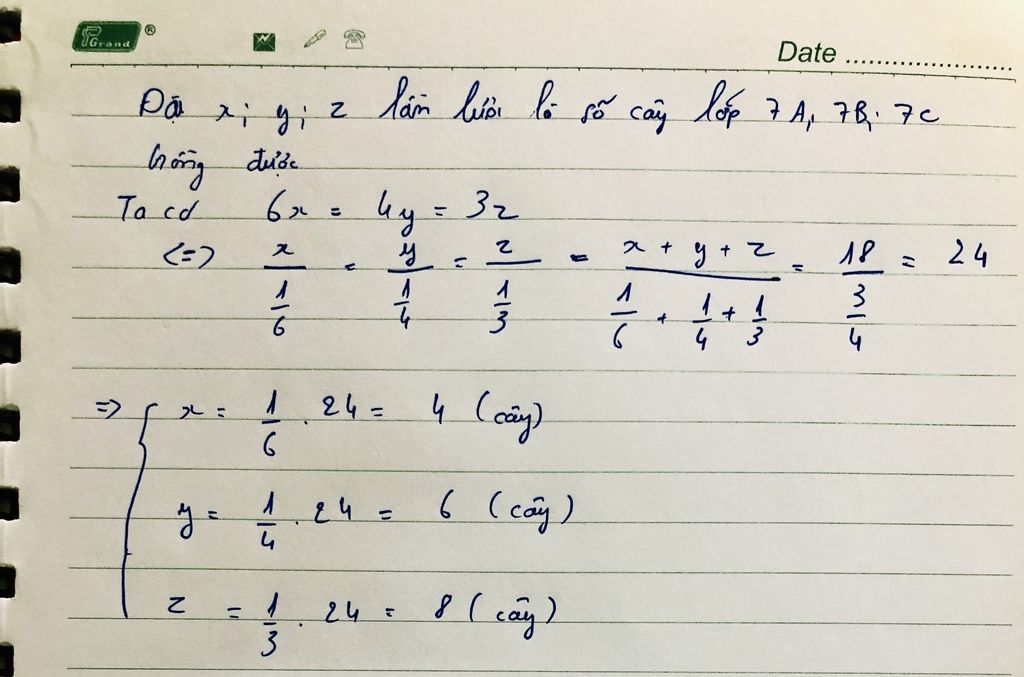 PGrand ®
Date .....................
Đặt x; y; z lần lượt là số cây lớp 7A, 7B, 7C
trồng được
Ta có 6x = 4y = 3z
<=> x/(1/6) = y/(1/4) = z/(1/3) = (x + y + z)/(1/6 + 1/4 + 1/3) = 18/(3/4) = 24
=> { x = 1/6 . 24 = 4 (cây)
y = 1/4 . 24 = 6 (cây)
z = 1/3 . 24 = 8 (cây)